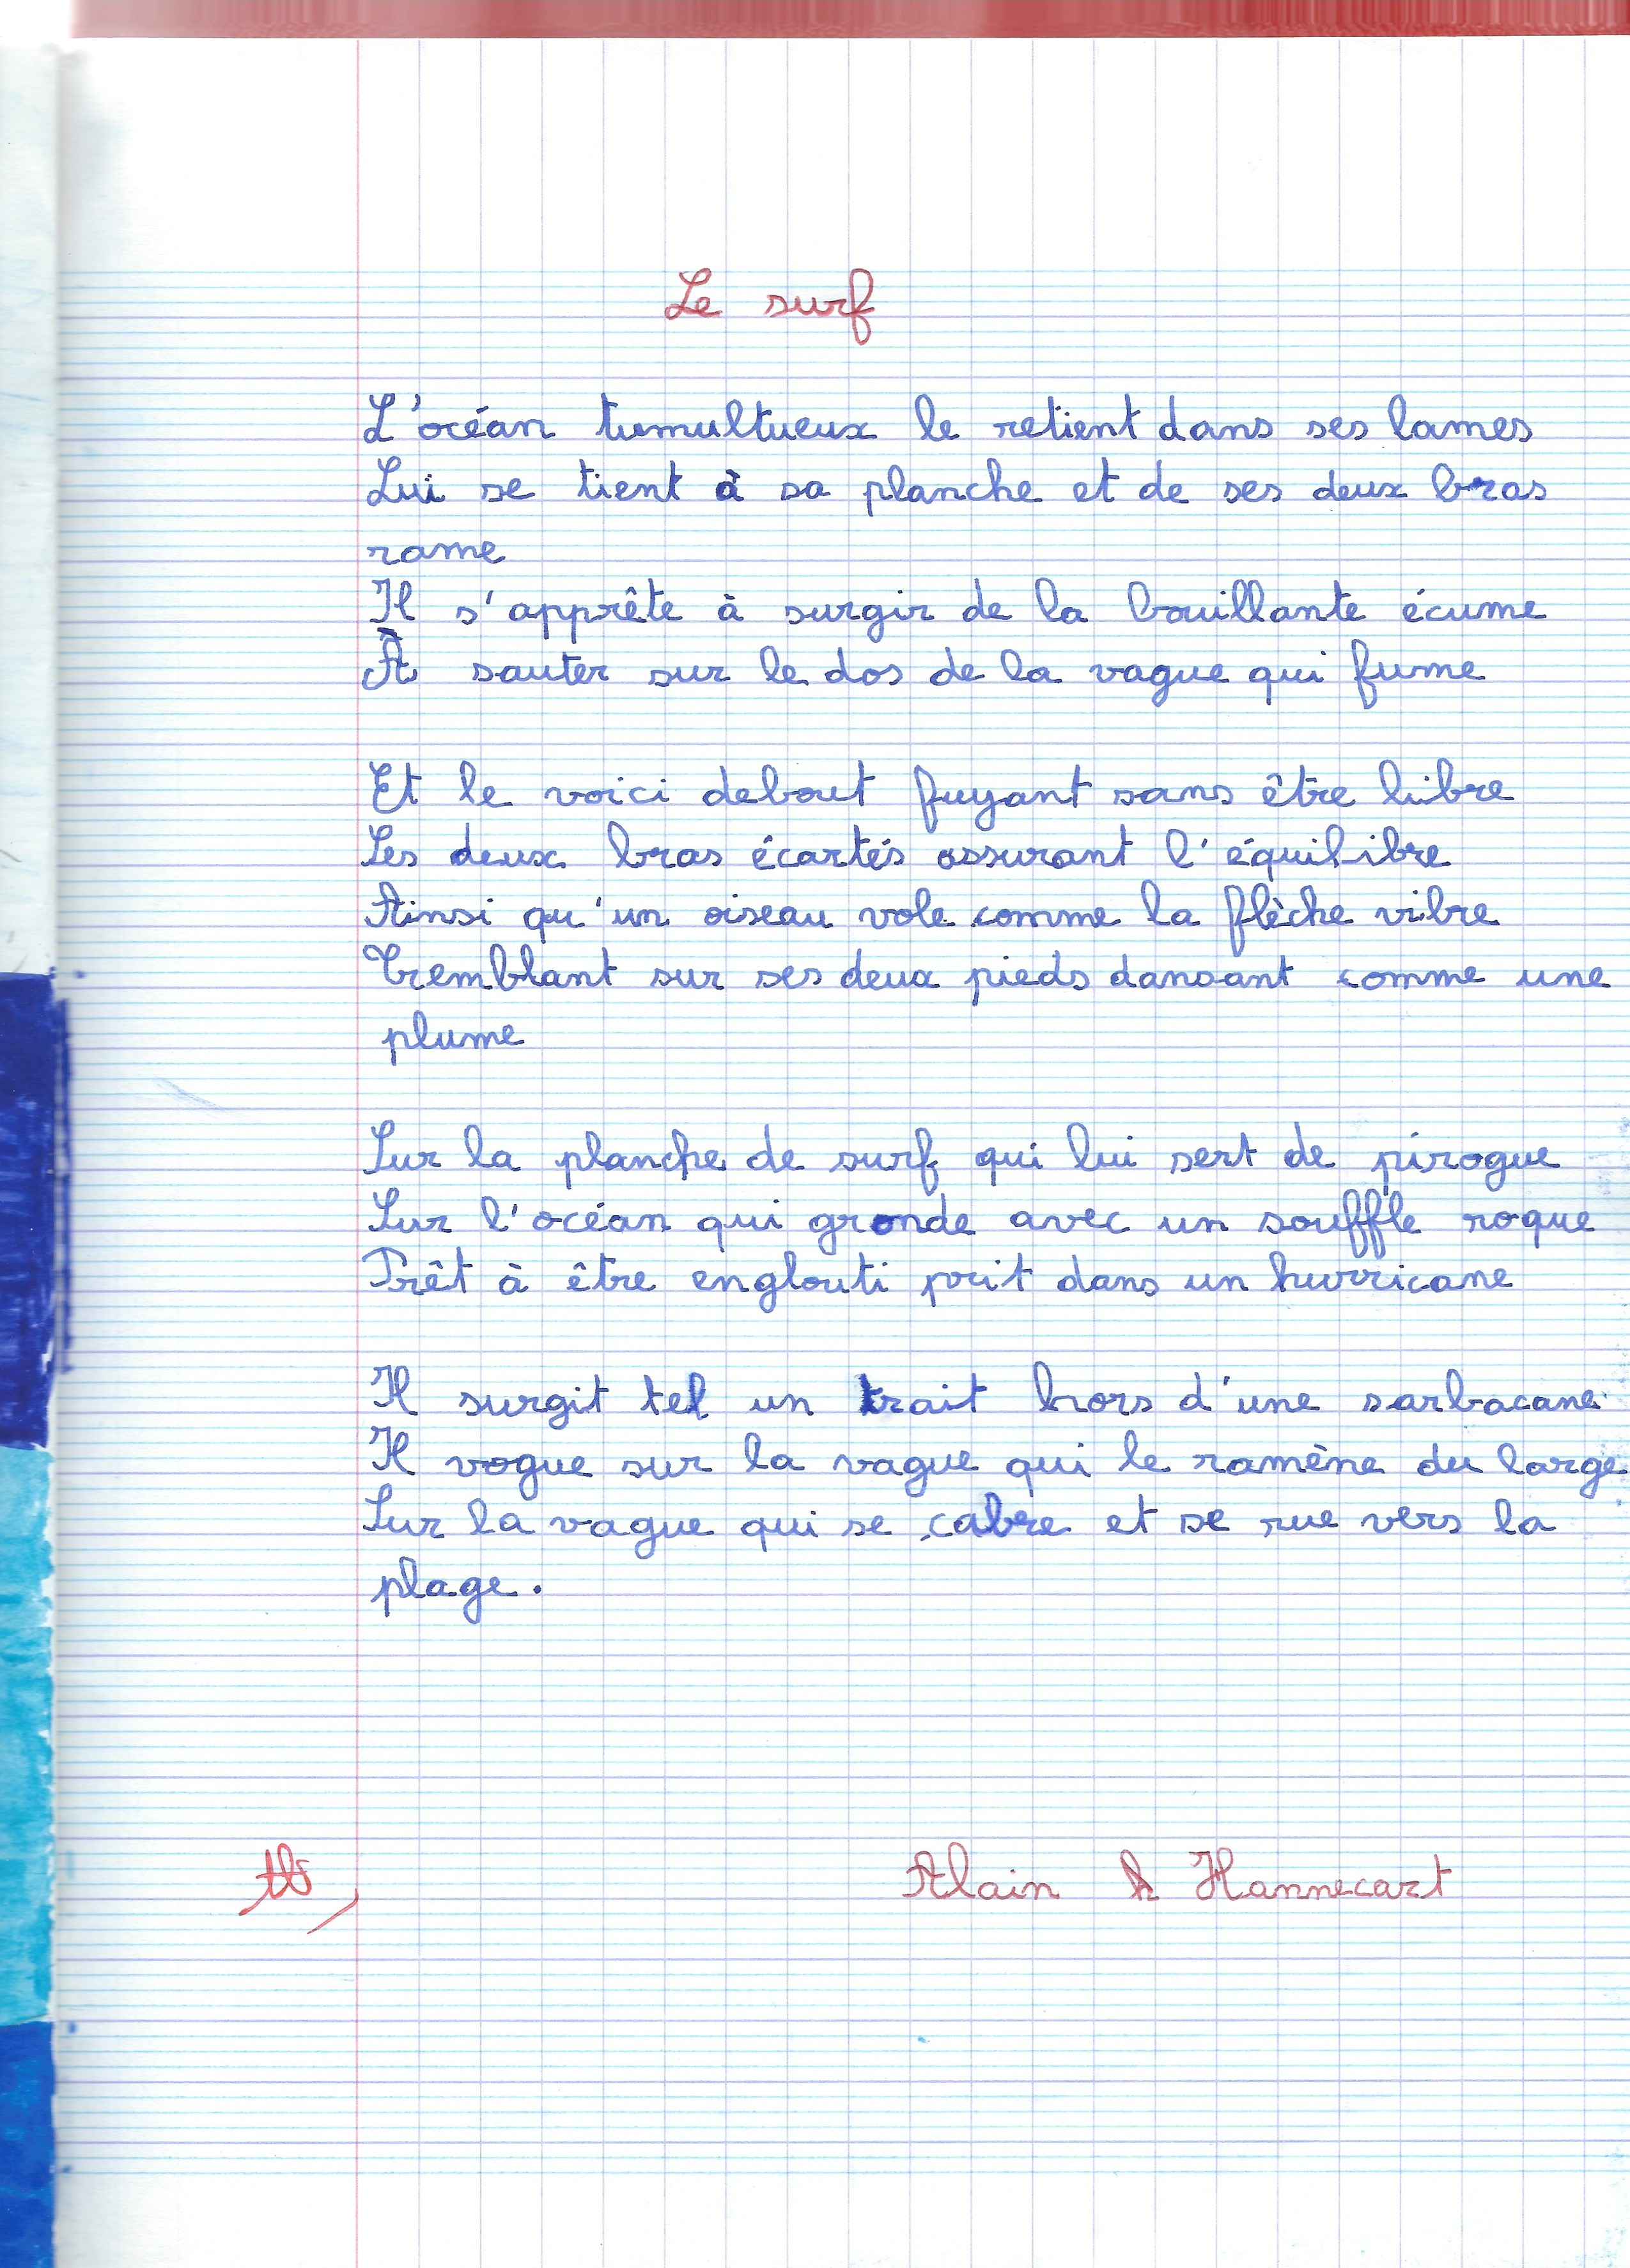 Le surf
L'océan tumultueux le retient dans ses lames
Lui se tient à sa planche et de ses deux bras
rame
Il s'apprête à surgir de la bouillante écume
À sauter sur le dos de la vague qui fume
Et le voici debout fuyant sans être libre
Les deux bras écartés assurant l'équilibre
Ainsi qu'un oiseau vole comme la flèche vibre
Tremblant sur ses deux pieds dansant comme une
plume
Sur la planche de surf qui lui sert de pirogue
Sur l'océan qui gronde avec un souffle rogue
Prêt à être englouti prit dans un hurricane
Il surgit tel un trait hors d'une sarbacane
Il vogue sur la vague qui le ramène du large
Sur la vague qui se cabre et se rue vers la
plage.
TB
Alain Hannecart